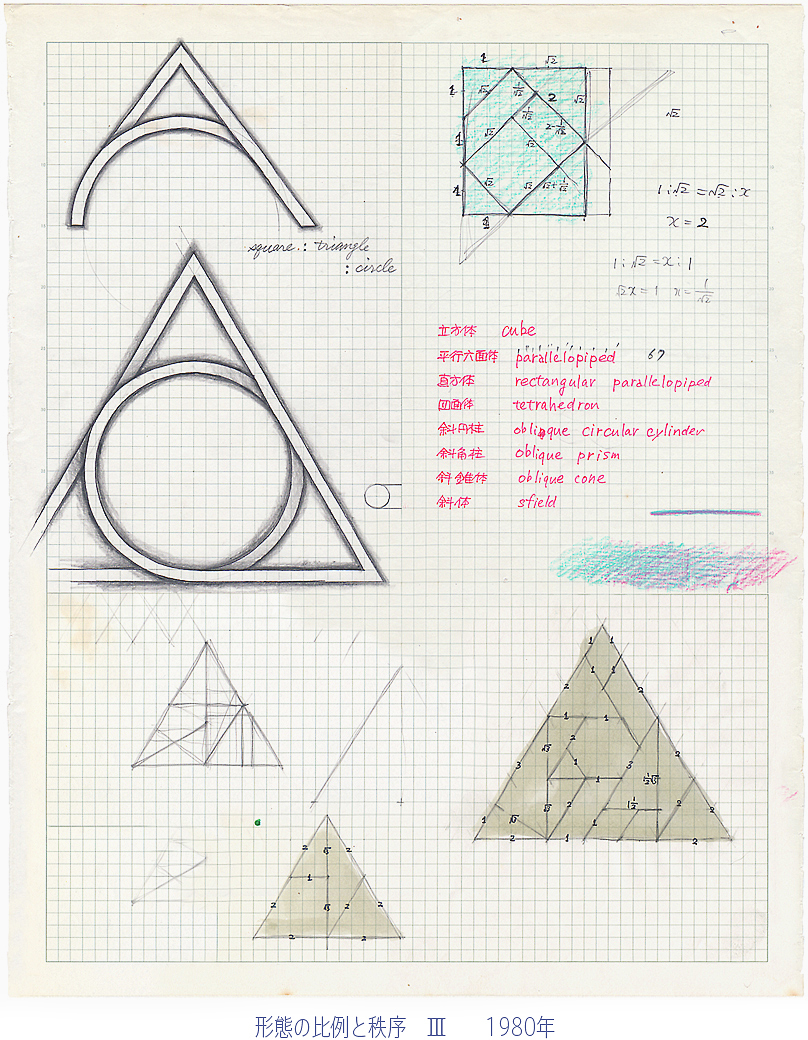 1 √2
1 √2 1/√2 2 √2
1/√2
1 √2 √2 2-1/√2
1 √2 √2 √2+1/√2
1
√2
1:√2=√2:x
x=2
1:√2=x:1
√2x=1 x=1/√2
square : triangle
: circle
立方体 cube
平行六面体 parallelopiped 67
直方体 rectangular parallelopiped
四面体 tetrahedron
斜円柱 oblique circular cylinder
斜角柱 oblique prism
斜錐体 oblique cone
斜体 sfield
1 1
1 1
2 2
1 1
√3 2 2
3 1 3 1½√3
1
√3 2 1½ 2 2
1 √3 1
2 1 2
2 √3 2
1
2 √3 2 2
2 2
形態の比例と秩序 Ⅲ 1980年